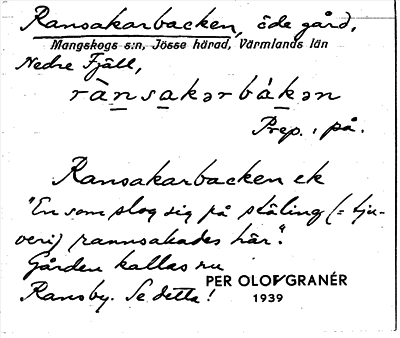 Ransakarbacken, öde gård,
Mangskogs s:n, Jösse härad, Värmlands län
Nedre Fjäll,
rànsakərbákən
Prep. : på.
Ransakarbacken ek
"En som slog sig på stäling (= tju-
veri) rannsakades här".
Gården kallas nu
Ransby. Se detta!
PER OLOF GRANÉR
1939